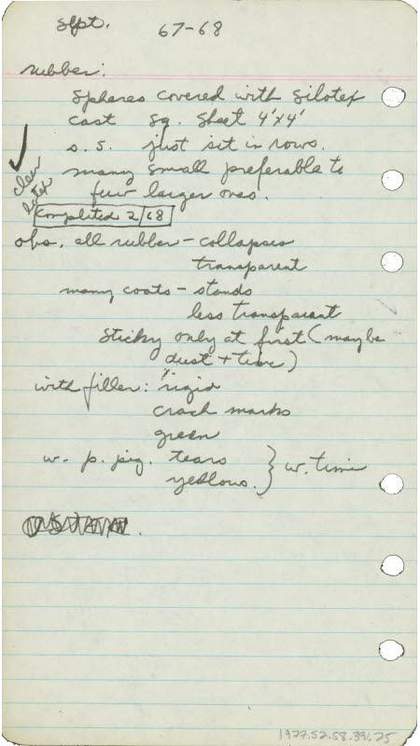 Sept. 67-68
rubber:
Spheres covered with Silotex
cast sq. sheet 4'x4'
s. s. just sit in rows.
many small preferable to
few larger ones.
clear
latex
Completed 2/68
obs. all rubber - collapses
transparent
many coats - stands
less transparent
Sticky only at first (maybe
dust + time)
with filler: rigid
crack marks
green
w. p. pig. tears } w. time
yellows.
1977.52.58.39.25